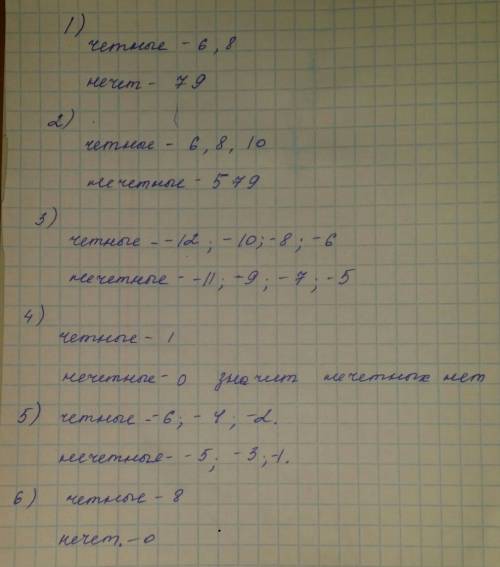 1)
четные - 6, 8
нечет - 7 9
2)
четные - 6, 8, 10
нечетные - 5 7 9
3)
четные - -12; -10; -8; -6
нечетные - -11; -9; -7; -5
4)
четные - 1
нечетные - 0 значит нечетных нет
5) четные - -6; -4; -2.
нечетные - -5; -3; -1.
6) четные - 8
нечет. - 0